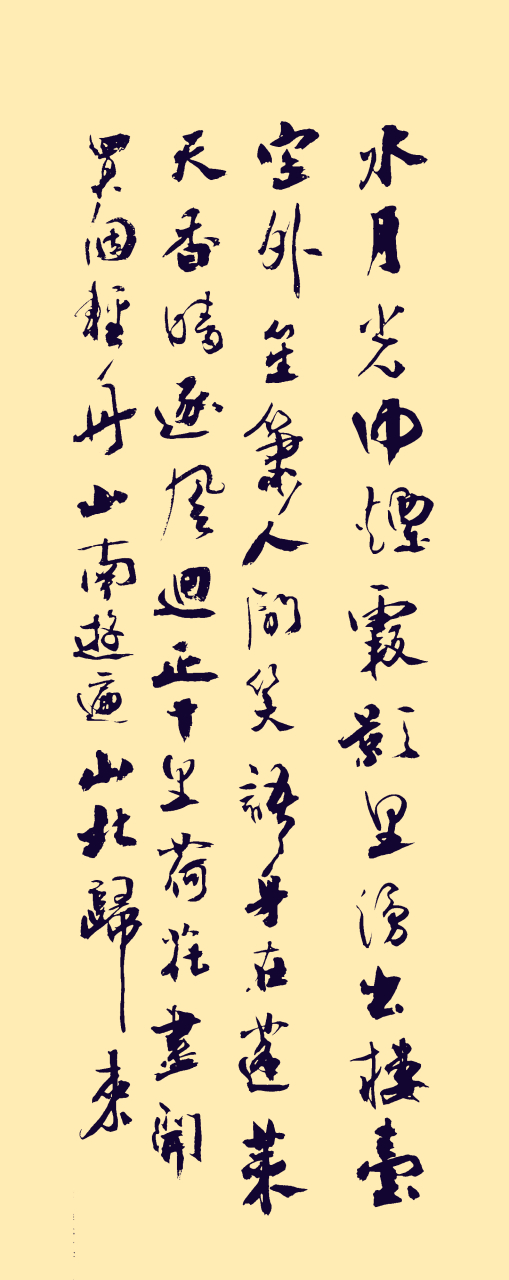 水月光中煙霞影里湧出樓臺
空外笙簫人間笑語身在蓬萊
天香暗逐風迴正十里荷花盡開
買個輕舟山南遊遍山北歸來